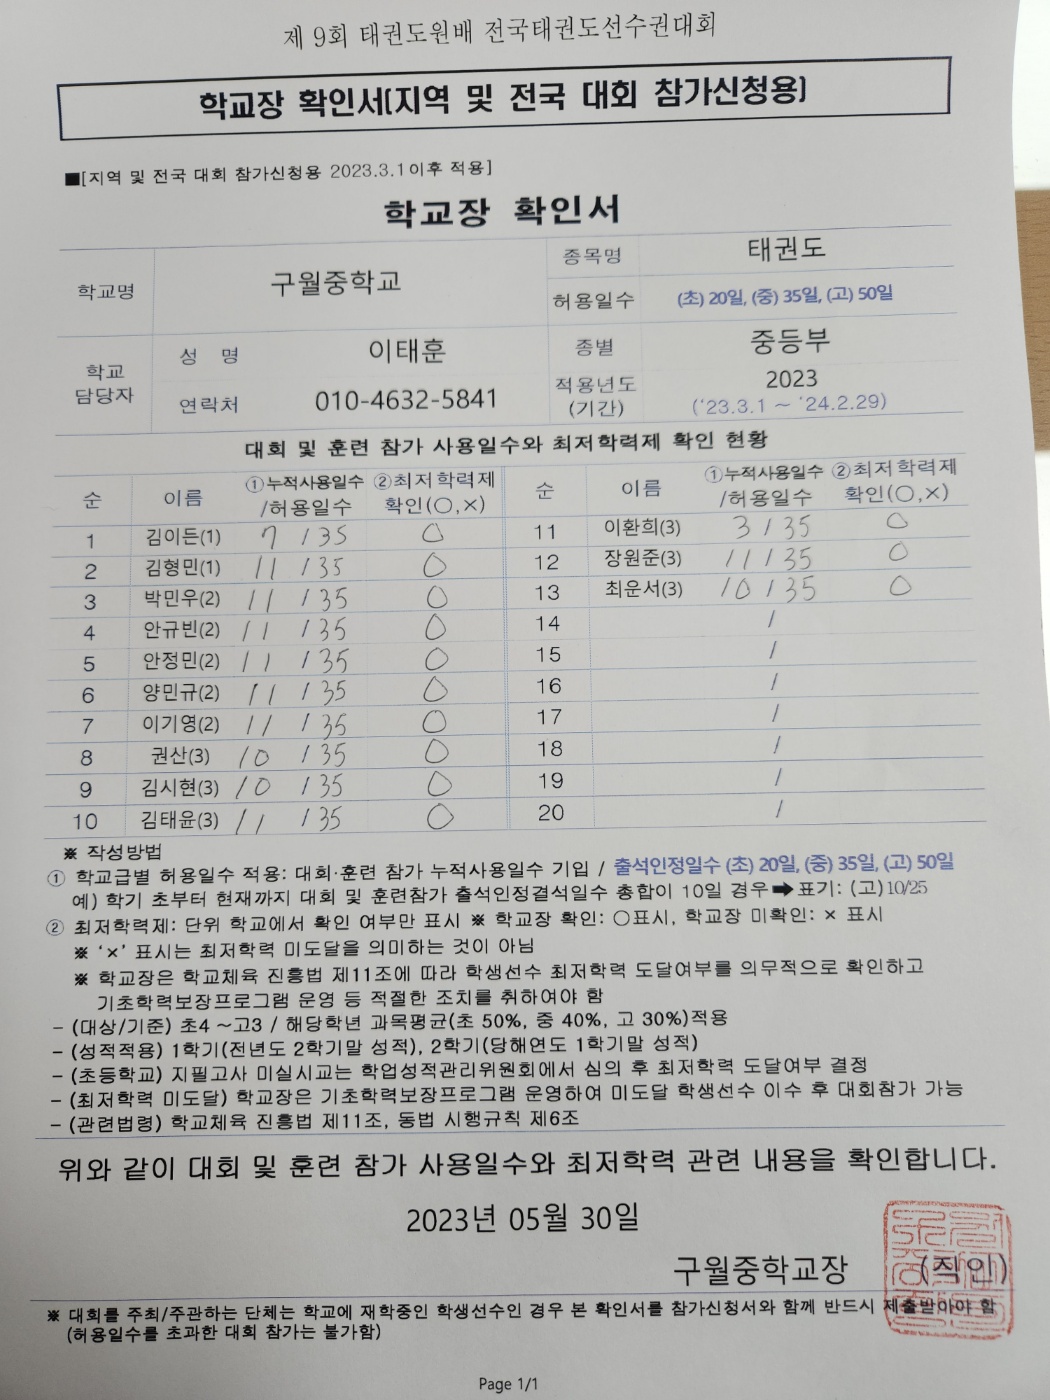 제 9회 태권도원배 전국태권도선수권대회
학교장 확인서(지역 및 전국 대회 참가신청용)
■[지역 및 전국 대회 참가신청용 2023.3.1이후 적용]
학교장 확인서
학교명 구월중학교 종목명 태권도
허용일수 (초) 20일, (중) 35일, (고) 50일
학교 담당자 성 명 이태훈 종별 중등부
연락처 010-4632-5841 적용년도 (기간) 2023 ('23.3.1 ~ '24.2.29)
대회 및 훈련 참가 사용일수와 최저학력제 확인 현황
순 이름 ①누적사용일수 /허용일수 ②최저학력제 확인(○,×) 순 이름 ①누적사용일수 /허용일수 ②최저학력제 확인(○,×)
1 김이든(1) 7 / 35 ○ 11 이환희(3) 3 / 35 ○
2 김형민(1) 11 / 35 ○ 12 장원준(3) 11 / 35 ○
3 박민우(2) 11 / 35 ○ 13 최운서(3) 10 / 35 ○
4 안규빈(2) 11 / 35 ○ 14 /
5 안정민(2) 11 / 35 ○ 15 /
6 양민규(2) 11 / 35 ○ 16 /
7 이기영(2) 11 / 35 ○ 17 /
8 권산(3) 10 / 35 ○ 18 /
9 김시현(3) 10 / 35 ○ 19 /
10 김태윤(3) 11 / 35 ○ 20 /
※ 작성방법
① 학교급별 허용일수 적용: 대회·훈련 참가 누적사용일수 기입 / 출석인정일수 (초) 20일, (중) 35일, (고) 50일
예) 학기 초부터 현재까지 대회 및 훈련참가 출석인정결석일수 총합이 10일 경우➡표기: (고)10/25
② 최저학력제: 단위 학교에서 확인 여부만 표시 ※ 학교장 확인: ○표시, 학교장 미확인: × 표시
※ '×' 표시는 최저학력 미도달을 의미하는 것이 아님
※ 학교장은 학교체육 진흥법 제11조에 따라 학생선수 최저학력 도달여부를 의무적으로 확인하고
기초학력보장프로그램 운영 등 적절한 조치를 취하여야 함
- (대상/기준) 초4 ~고3 / 해당학년 과목평균(초 50%, 중 40%, 고 30%)적용
- (성적적용) 1학기(전년도 2학기말 성적), 2학기(당해연도 1학기말 성적)
- (초등학교) 지필고사 미실시교는 학업성적관리위원회에서 심의 후 최저학력 도달여부 결정
- (최저학력 미도달) 학교장은 기초학력보장프로그램 운영하여 미도달 학생선수 이수 후 대회참가 가능
- (관련법령) 학교체육 진흥법 제11조, 동법 시행규칙 제6조
위와 같이 대회 및 훈련 참가 사용일수와 최저학력 관련 내용을 확인합니다.
2023년 05월 30일
구월중학교장 (직인)
※ 대회를 주최/주관하는 단체는 학교에 재학중인 학생선수인 경우 본 확인서를 참가신청서와 함께 반드시 제출받아야 함
(허용일수를 초과한 대회 참가는 불가함)
Page 1/1